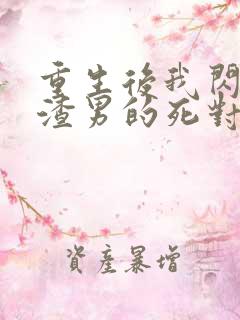 重生後我閃
渣男的死對
資產暴增